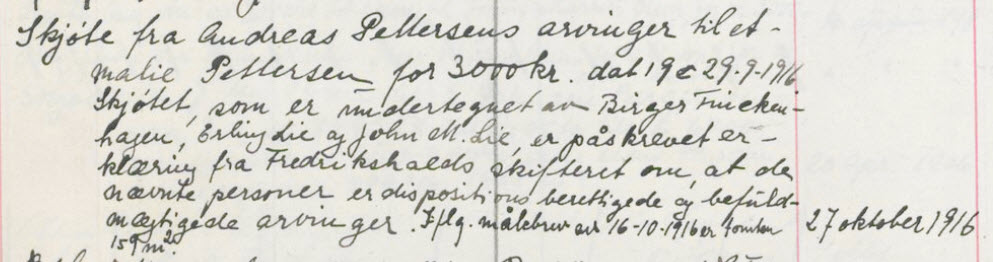 Skjøte fra Andreas Pettersens arvinger til et-
malie Pettersen for 3000 kr. dat 19 & 29-9-1916
Skjøtet, som er undertegnet av Birger Fincken-
hagen, Erling Lie og John M. Lie, er påskrevet er-
klæring fra Fredrikshalds skifteret om, at de
nævnte personer er dispositionsberettigede og befuld-
mægtigede arvinger. Iflg. målebrev av 16-10-1916 er tomten 27 oktober 1916
159 m².